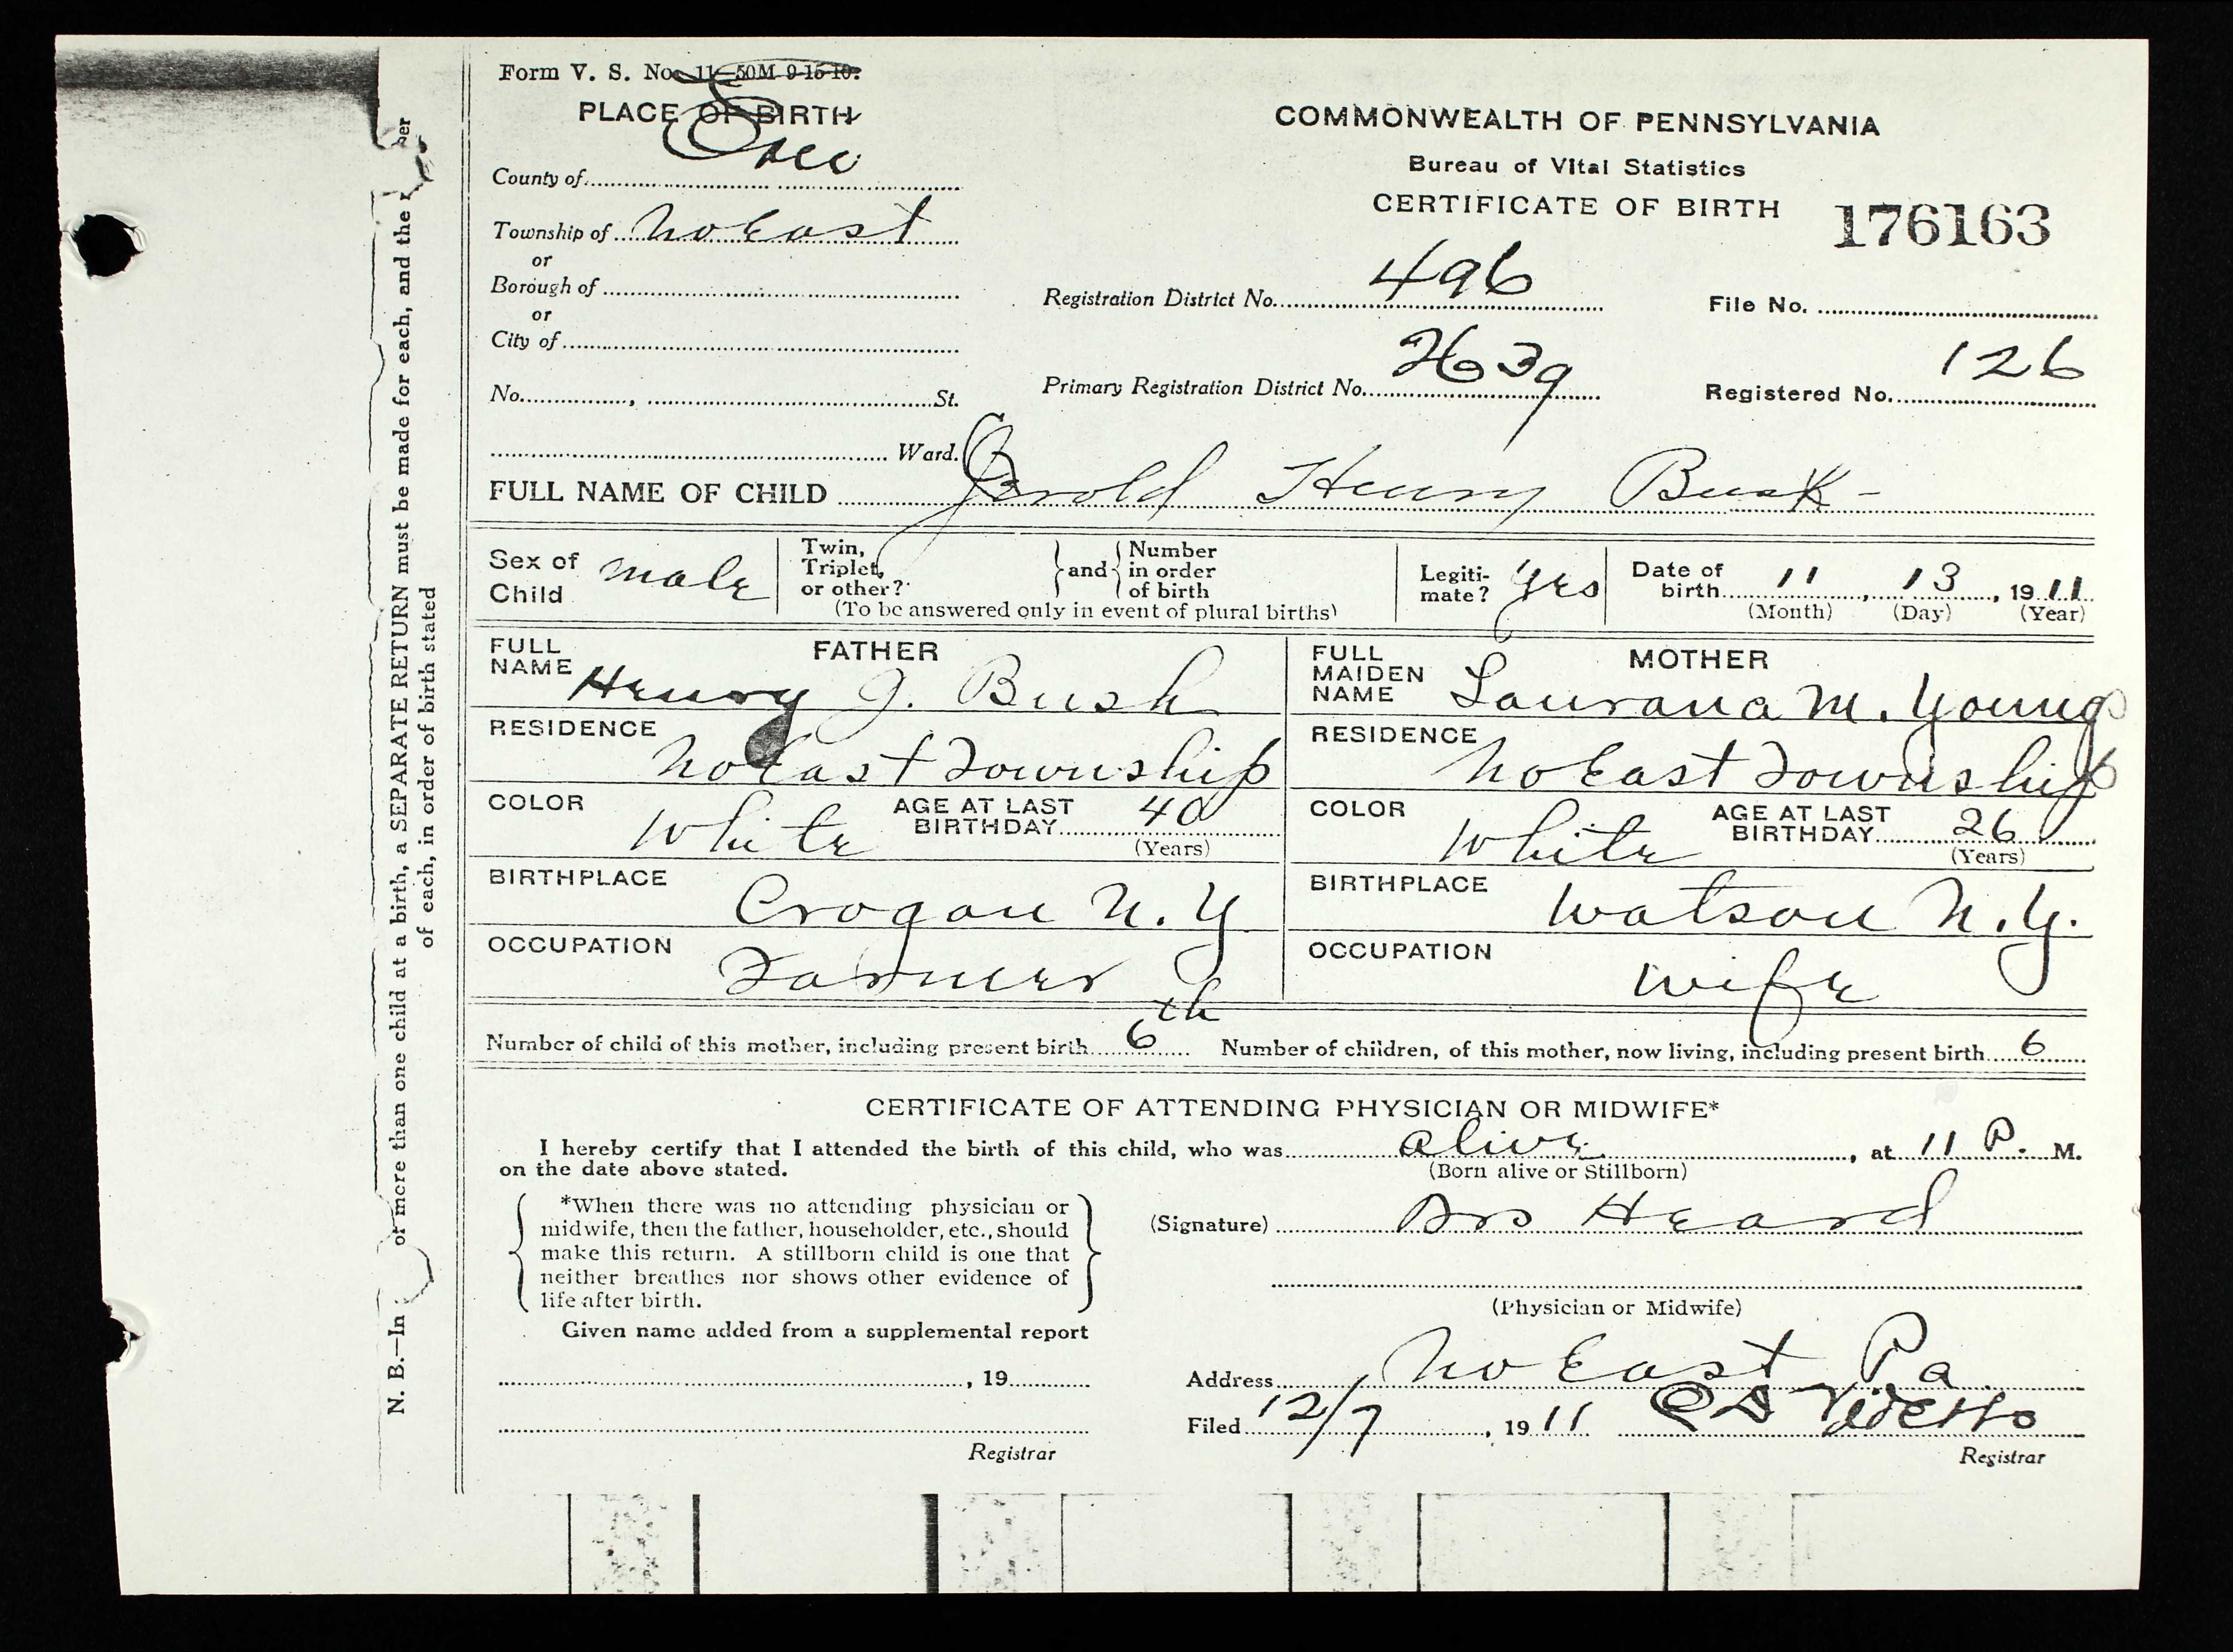 Form V. S. No. 11—50M 9-15-10.
PLACE OF BIRTH
County of Erie
Township of No East
or
Borough of
or
City of
No. , St.
Ward.
COMMONWEALTH OF PENNSYLVANIA
Bureau of Vital Statistics
CERTIFICATE OF BIRTH
176163
Registration District No. 496
File No.
Primary Registration District No. 2639
Registered No. 126
FULL NAME OF CHILD Jerold Henry Bush
Sex of Child male
Twin, Triplet, or other? and Number in order of birth
(To be answered only in event of plural births)
Legiti-mate? yes
Date of birth 11, 13, 1911
(Month) (Day) (Year)
FATHER
FULL NAME Henry J. Bush
RESIDENCE No East Township
COLOR White AGE AT LAST BIRTHDAY 40
(Years)
BIRTHPLACE Crogan N. Y
OCCUPATION Farmer
MOTHER
FULL MAIDEN NAME Laurana M. Young
RESIDENCE No East Township
COLOR White AGE AT LAST BIRTHDAY 26
(Years)
BIRTHPLACE Watson N. Y.
OCCUPATION wife
Number of child of this mother, including present birth 6th Number of children, of this mother, now living, including present birth 6
CERTIFICATE OF ATTENDING PHYSICIAN OR MIDWIFE*
I hereby certify that I attended the birth of this child, who was alive, at 11 P. M.
on the date above stated. (Born alive or Stillborn)
*When there was no attending physician or
midwife, then the father, householder, etc., should
make this return. A stillborn child is one that
neither breathes nor shows other evidence of
life after birth.
(Signature) Drs Heard
(Physician or Midwife)
Given name added from a supplemental report
, 19
Registrar
Address No East Pa
Filed 12/7, 1911
Registrar
N. B.—In or more than one child at a birth, a SEPARATE RETURN must be made for each, and the ber
of each, in order of birth stated